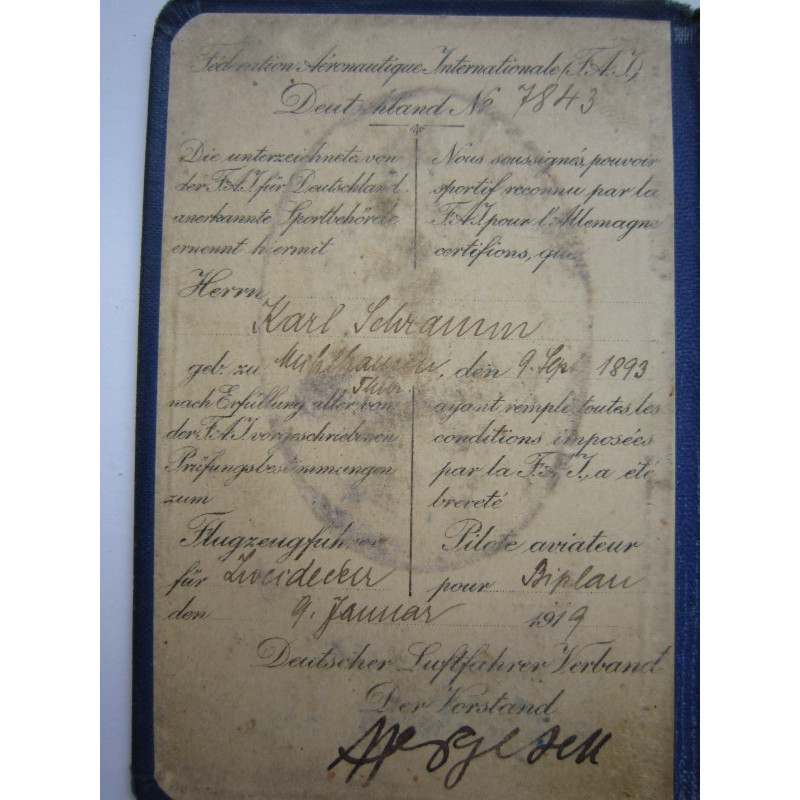 Fédération Aéronautique Internationale (F.A.I.)
Deutschland No 7843
Die unterzeichnete, von
der F.A.I. für Deutschland
anerkannte Sportbehörde
ernennt hiermit
Nous soussignés, pouvoir
sportif reconnu par la
F.A.I. pour l'Allemagne
certifions, que
Herrn
Karl Schramm
geb. zu Mühlhausen, den 9. Sept. 1893
Thür.
nach Erfüllung aller, von
der F.A.I. vorgeschriebenen
Prüfungsbestimmungen
zum
Flugzeugführer
für Zweidecker
ayant rempli toutes les
conditions imposées
par la F.A.I., a été
breveté
Pilote aviateur
pour Biplan
den 9. Januar 1919
Deutscher Luftfahrer Verband
Der Vorstand